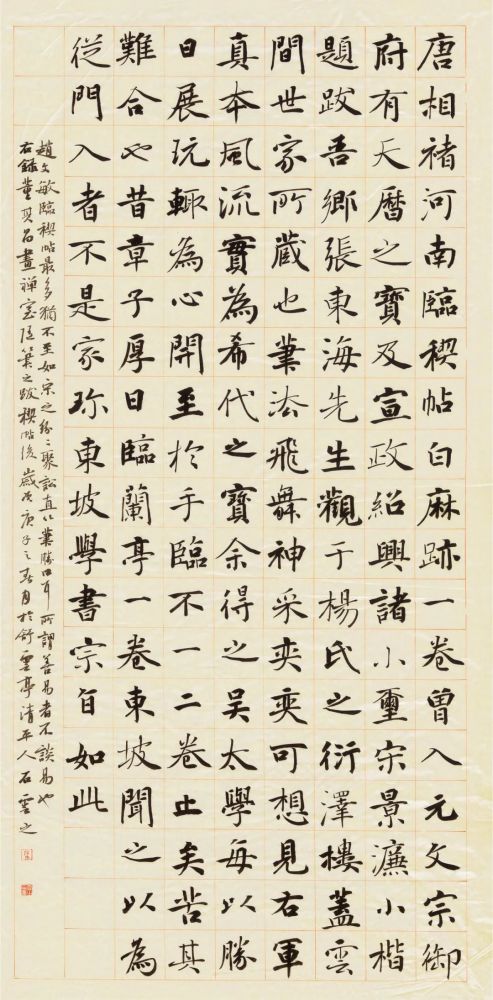 唐相褚河南臨稧帖白麻跡一卷曾入元文宗御
府有天曆之寶及宣政紹興諸小璽宋景濂小楷
題跋吾鄉張東海先生觀于楊氏之衍澤樓蓋雲
間世家所藏也筆法飛舞神采奕奕可想見右軍
真本風流實為希代之寶余得之吳太學每以勝
日展玩輒為心開至於手臨不一二卷止矣苦其
難合也昔章子厚日臨蘭亭一卷東坡聞之以為
從門入者不是家珍東坡學書宗旨如此
趙文敏臨稧帖最多猶不至如宋之紛〻聚訟直以筆勝口耳所謂善易者不談易也
右錄董其昌畫禪室隨筆之跋稧帖後歲次庚子之春月於舒雲亭清平人石雲之